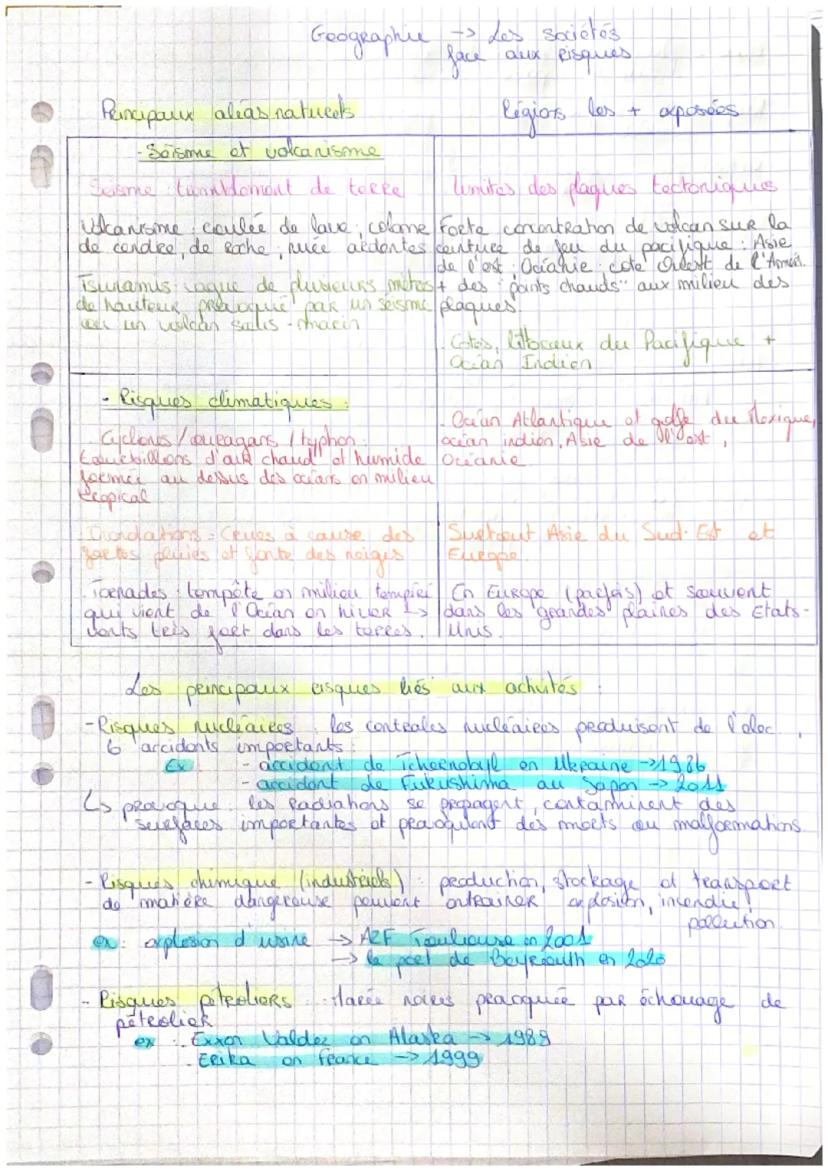 Geographie -> Les sociétés
face aux risques
Principaux aléas naturels
Régions les + exposées
- Séisme et volcanisme
Seisme : tremblement de terre
limites des plaques tectoniques
Volcanisme : coulée de lave, colone
de cendre, de Roche, nuée ardentes
Forte concentration de volcan sur la
ceinture de feu du pacifique : Asie
de l'est, Océanie, cote Ouest de l'Améri.
+ des "points chauds" aux milieu des
plaques.
Tsunamis : vague de plusieurs mètres
de hauteur provoqué par un séisme
ou un volcan sous-marin
Cotes, littoraux du Pacifique +
Océan Indien
- Risques climatiques :
Cyclones / ouragans / typhon :
tourbillons d'air chaud et humide
formée au dessus des océans en milieu
tropical
- Océan Atlantique et golfe du Mexique,
océan indien, Asie de l'est,
Océanie
Inondations : Crues à cause des
fortes pluies et fonte des neiges
Surtout Asie du Sud-Est et
Europe.
Tornades : tempête en milieu tempéré
qui vient de l'Océan en hiver ->
vents très fort dans les terres.
En Europe (parfois) et souvent
dans les grandes plaines des Etats-
Unis.
Les principaux risques liés aux activités :
- Risques nucléaires : les centrales nucléaires produisent de l'élec.,
6 accidents importants :
Ex : - accident de Tchernobyl en Ukraine -> 1986
- accident de Fukushima au Japon -> 2011
↳ provoque : les Radiations se propagent, contaminent des
surfaces importantes et provoquent des morts ou malformations
- Risques chimique (industriels) : production, stockage et transport
de matière dangereuse peuvent entrainer explosion, incendie,
pollution
ex : explosion d'usine -> AZF Toulouse en 2001
-> le port de Beyrouth en 2020
- Risques pétroliers : Marée noires provoquée par échouage de
pétrolier
ex : - Exxon Valdez en Alaska -> 1989
- Erika en France -> 1999